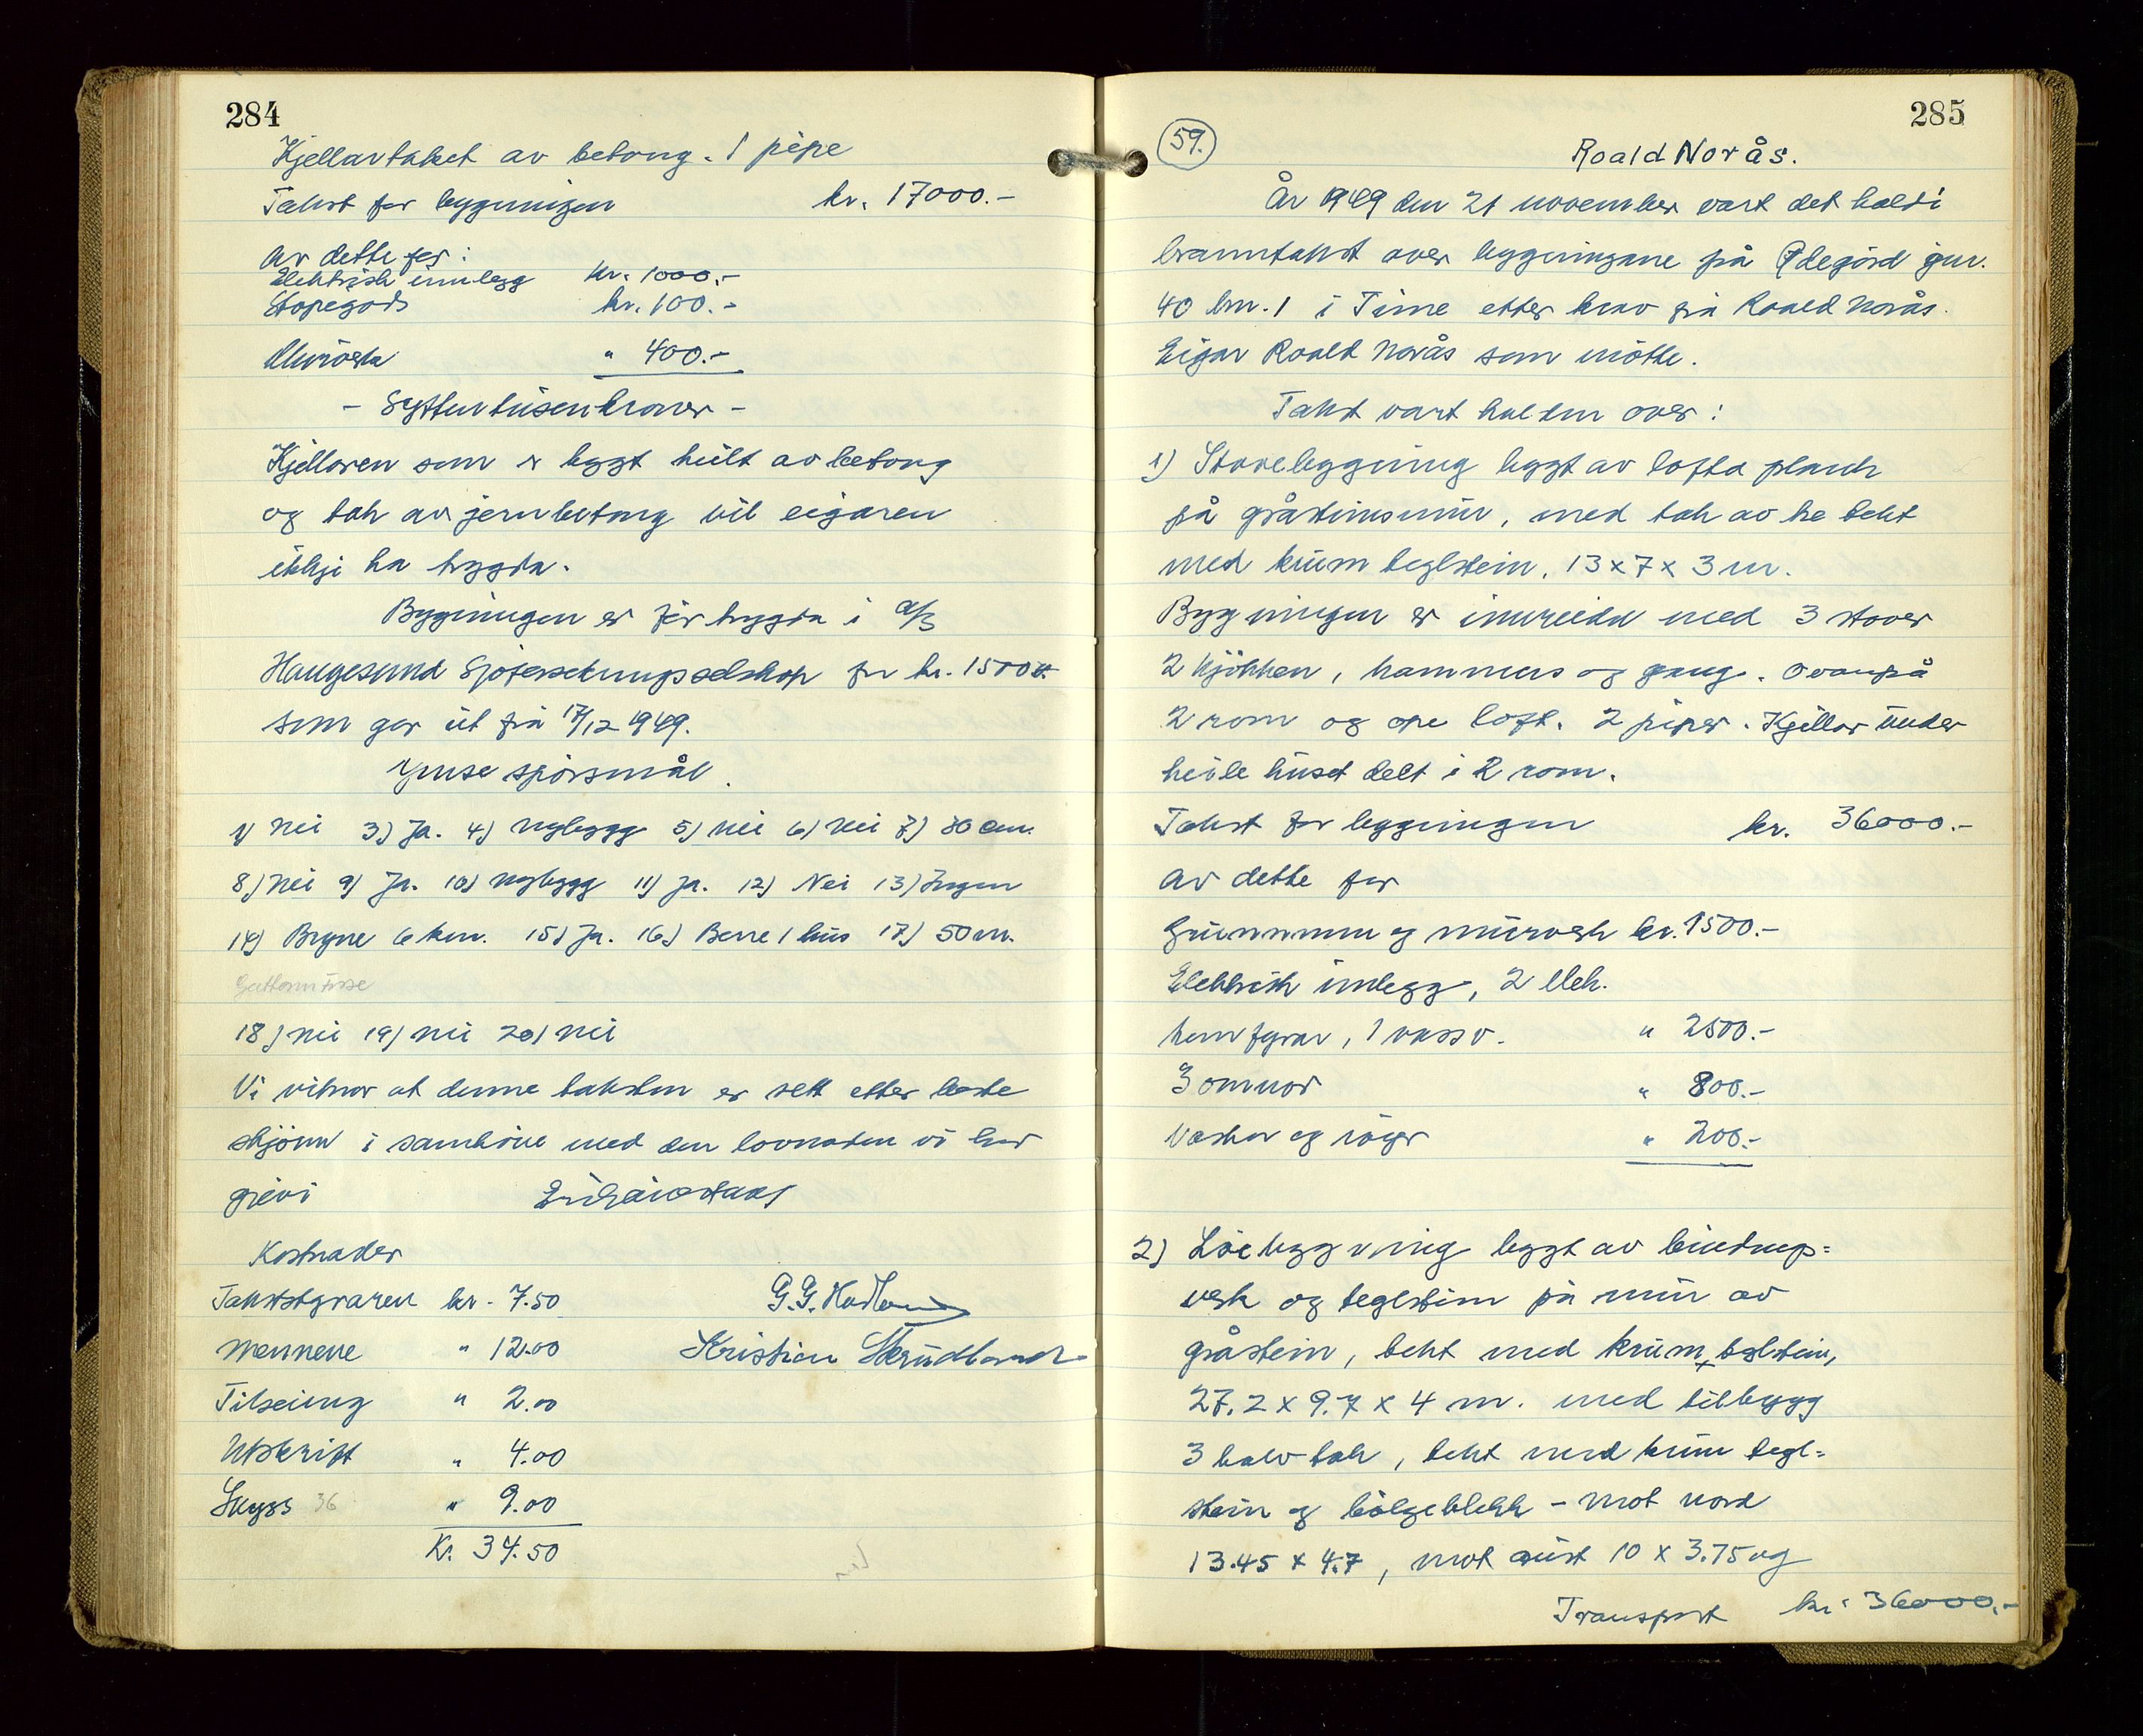 284
Kjellartaket av betong. 1 pipe
Takst for bygningen kr. 17000.-
Av dette for:
Elektrisk innlegg kr. 1000.-
Støpegods kr. 100.-
Murverk " 400.-
- Syttentusen kroner -
Kjellaren som er bygt heilt av betong
og tak av jernbetong vil eigaren
ikkje ha trygda.
Bygningen er før trygda i A/S
Haugesund Sjøforsekringsselskap for kr. 15000.-
som gar ut frå 17/12 1949.
Ymse spörsmål.
1) Nei 3) Ja. 4) Nybygg 5) Nei 6) Nei 7) 30 cm.
8) Nei 9) Ja. 10) Nybygg 11) Ja. 12) Nei 13) Ingen
14) Bryne 6 km. 15) Ja. 16) Berre 1 hus 17) 50 m.
18) Nei 19) Nei 20) Nei
Vi vitnar at denne taksten er sett etter beste
skjönn i samhöve med den lovnaden vi har
gievi
Kostnader
Takststyraren kr. 7.50
Mennene " 12.00 Kristian Skrudland
Tilseing " 2.00
Utskrift " 4.00
Skyss 36 " 9.00
Kr. 34.50
285
59.
Roald Norås.
År 1949 den 21 november vart det haldi
branntakst over bygningane på Ødegård gnr.
40 bnr. 1 i Time etter krav frå Roald Norås.
Eigar Roald Norås som mötte.
Takst vart halden over:
1) Stovebygning bygt av lafta plank
på gråsteinsmur, med tak av tre tekt
med krum teglstein. 13 x 7 x 3 m.
Bygningen er innreidd med 3 stover
2 kjökken, kammers og gang. Ovanpå
2 rom og ope loft. 2 piper. Kjellar under
heile huset delt i 2 rom.
Takst for bygningen kr. 36000.-
Av dette for
Grunnmur og murverk kr. 1500.-
Elektrisk innlegg, 2 elek.
komfyrar, 1 vassv. " 2500.-
3 omnar " 800.-
Vasker og röyr " 200.-
2) Löebygning bygt av bindings=
verk og teglstein på mur av
gråstein, tekt med krum teglstein,
27.2 x 9.7 x 4 m. med tilbygg
3 halvtak, tekt med krum tegl=
stein og bölgeblekk - mot nord
13.45 x 4.7, mot aust 10 x 3.75 og
Transport kr. 36000.-